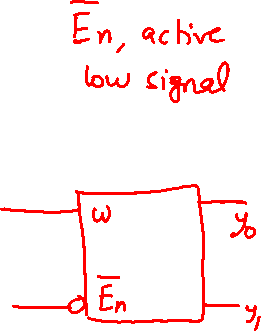 E̅n, active
low signal
w
y₀
E̅n
y₁